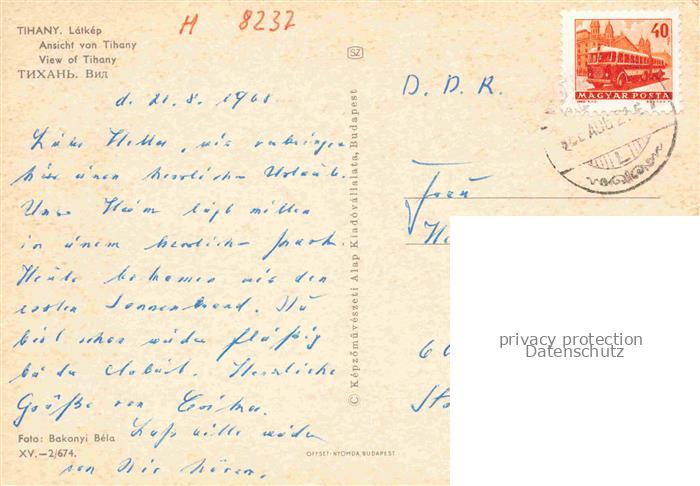 H 8237
TIHANY. Látkép
Ansicht von Tihany
View of Tihany
ТИХАНЬ. Вид
d. 21.8.1968
Liebe Hella, wir verbringen
hier einen herrlichen Urlaub.
Unser Heim liegt mitten
in einem herrlichen Park.
Heute bekamen wir den
ersten Sonnenbrand. Du
bist schon wieder fleißig
bei der Arbeit. Herzliche
Grüße von
Laß bitte wieder
von Dir hören.
Foto: Bakonyi Béla
XV.—2/674.
SZ
© Képzőművészeti Alap Kiadóvállalata, Budapest
OFFSET-NYOMDA, BUDAPEST
D. D. R.
40
MAGYAR POSTA
AUG
Frau
privacy protection
Datenschutz